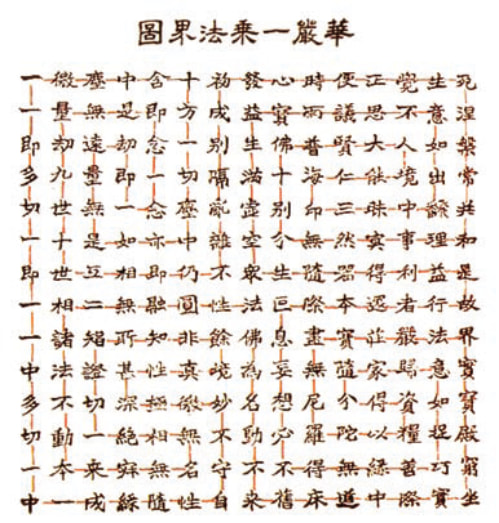 華嚴一乘法界圖
一微塵中含十初發心時便正覺生死
一量無是即方成益寶雨議思不意涅
即劫遠劫念一別生佛普賢大人如槃
多九量即一切隔滿十海仁能境出常
切世無一念塵亂虛別印三昧中繁共
一十是如亦中雜空分無然冥事理和
即世互相即仍不衆生隨器得利益是
一相二無融圓性法叵際本還者行故
一諸智所知非餘佛息盡寶莊嚴法界
中法證甚性真境為妄無隨家歸意實
多不切深極微妙名想尼分得資如寶
切動一絕相無不動必羅陀以糧捉殿
一本来寂無名守不不得無緣善巧窮
中一成緣隨性自来舊床道中際實坐